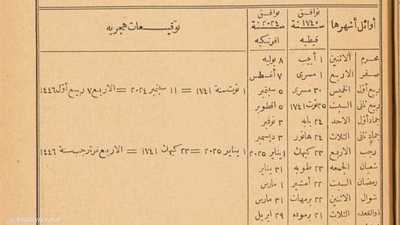 أوائل أشهرها | توافق سنة ١٧٤٠ قبطيه | توافق سنة ٢٠٢٤ افرنكيه | توقيعات هجريه
محرم الاثنين ١ أبيب ٨ يوليه
صفر الاربع ١ مسرى ٧ أغسطس
ربيع أول الخميس ٣٠ مسرى ٥ سبتمبر ١ توت سنة ١٧٤١ = ١١ سبتمبر ٢٠٢٤ = الاربع ٧ ربيع أول ١٤٤٦
ربيع ثانى السبت ٢٥ توت ١٧٤١ ٥ اكتوبر
جماد أول الاحد ٢٤ بابه ٣ نوفبر
جماد ثانى الثلاث ٢٤ هاتور ٣ ديسمبر
رجب الاربع ٢٣ كيهك ١ يناير ٢٠٢٥ ١ يناير ٢٠٢٥ = ٢٣ كيهك ١٧٤١ = الاربع غرة رجب سنة ١٤٤٦
شعبان الجمعه ٢٣ طوبه ٣١ يناير
رمضان السبت ٢٢ أمشير ١ مارس
شوال الاثنين ٢٢ برمهات ٣١ مارس
ذوالقعده الثلاث ٢١ برموده ٢٩ ابريل